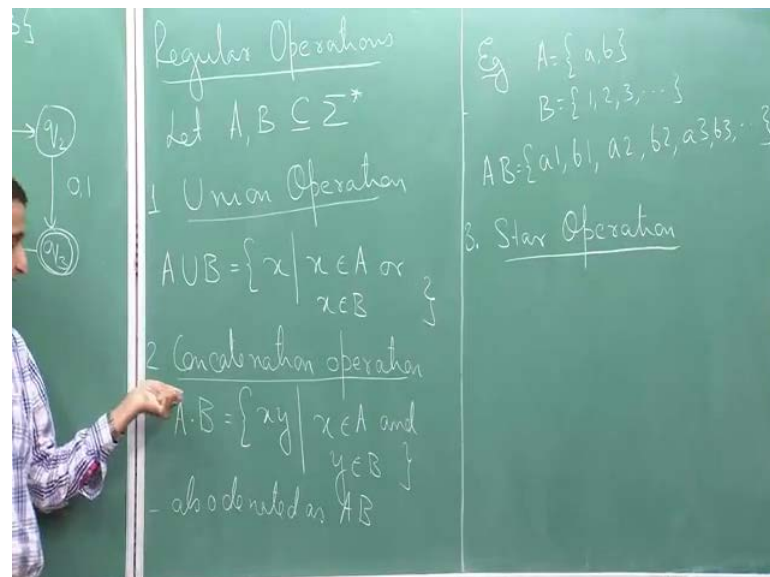 b}
q2
0,1
q3
Regular Operations
Let A, B ⊆ Σ*
1 Union Operation
A∪B = { x | x ∈ A or
x ∈ B }
2 Concatenation operation
A·B = { xy | x ∈ A and
y ∈ B }
- also denoted as AB
Eg A = { a, b }
B = { 1, 2, 3, ... }
AB = { a1, b1, a2, b2, a3, b3, ... }
3. Star Operation